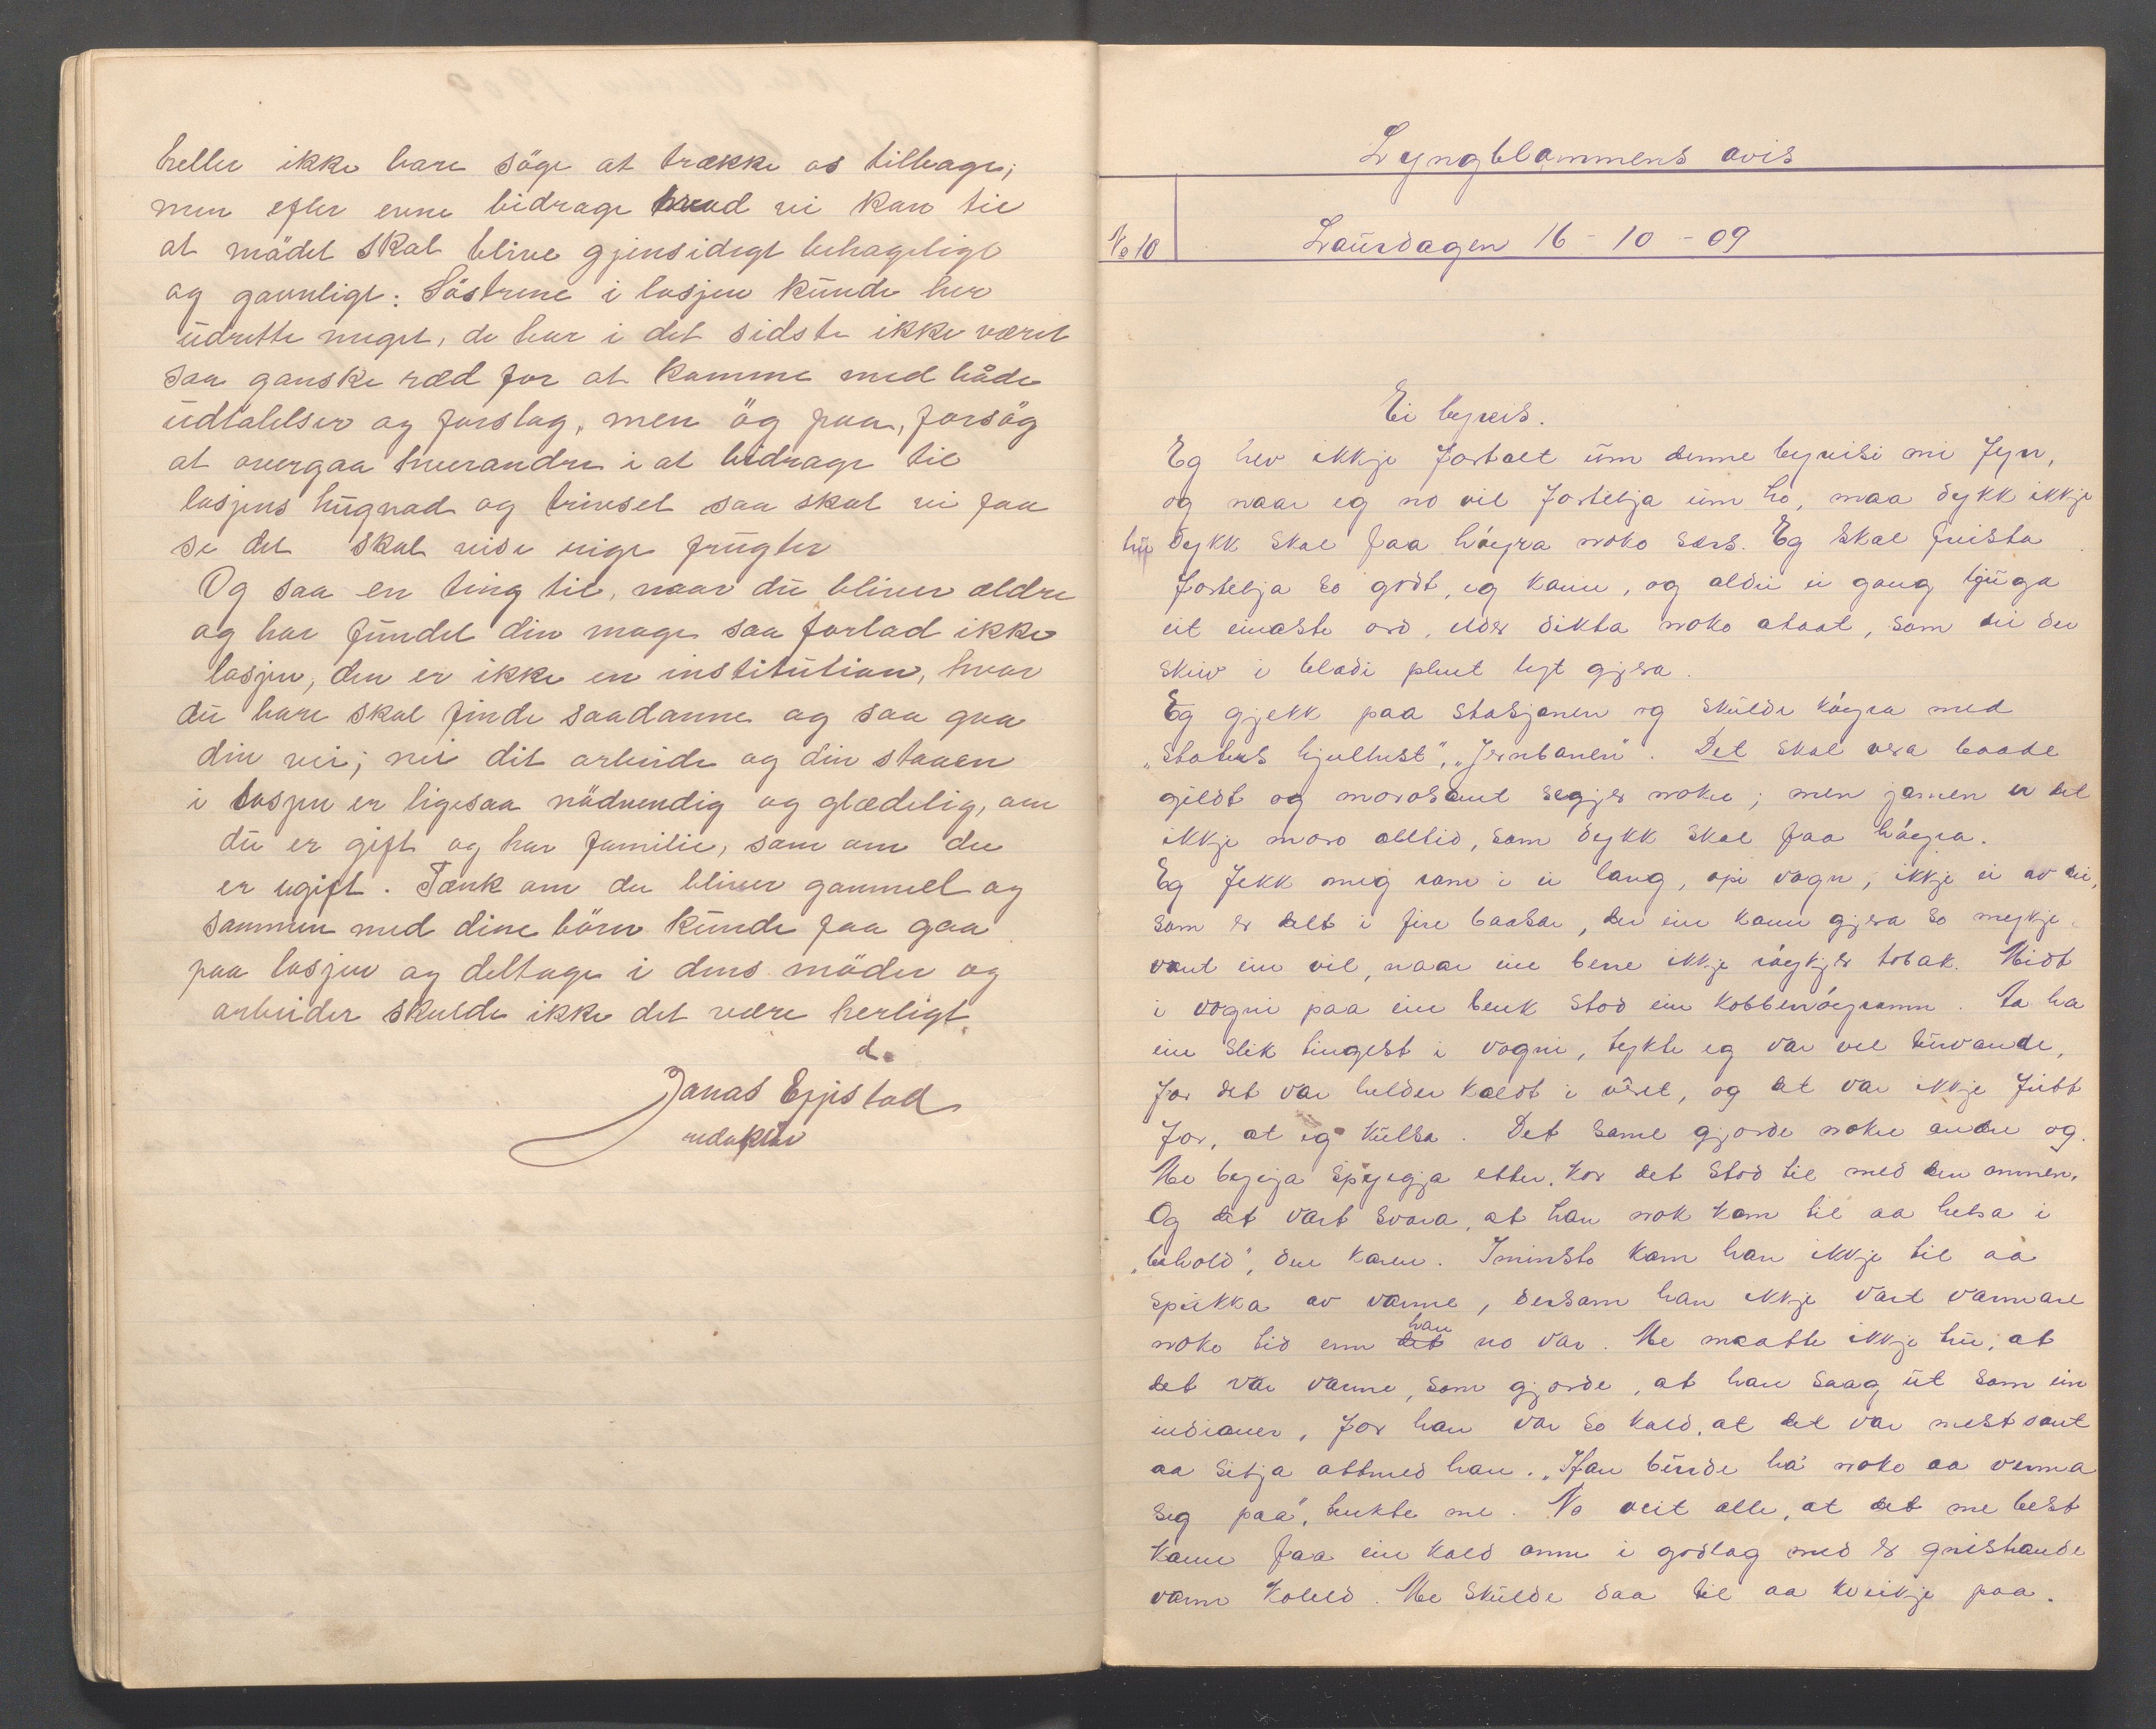 heller ikke bare söge at trække os tilbage;
men efter evne bidrage hvad vi kan til
at mödet skal blive gjensidigt behageligt
og gavnligt. Söstrene i losjen kunde her
udrette meget, de har i det sidste ikke været
saa ganske ræd for at komme med både
udtalelser og forslag, men ög paa, forsög
at overgaa hverandre i at bidrage til
losjens hugnad og trivsel saa skal vi faa
se det skal vise rige frugter
Og saa en ting til, naar du bliver ældre
og har fundet din mage saa forlad ikke
losjen, den er ikke en institution, hvor
du bare skal finde saadanne og saa gaa
din vei; nei dit arbeide og din staaen
i losjen er ligesaa nödvendig og glædelig, om
du er gift og har familie, som om du
er ugift. Tænk om du bliver gammel og
sammen med dine börn kunde faa gaa
paa losjen og deltage i dens möder og
arbeider skulde ikke det være herligt.
d.
Jonas Epistad
redaktör
Lyngblommens avis
No 10 Laurdagen 16-10-09
Ei byreis.
Eg hev ikkje fortalt um denne byreisi mi fyr,
og naar eg no vil fortelja um ho, maa dykk ikkje
tru dykk skal faa höyra noko særs. Eg skal freista
fortelja so godt, eg kann, og aldri ei gong ljuga
eit einaste ord, elder dikta noko attaat, som dei der
skriv i bladi plent lyt gjera.
Eg gjekk paa stasjonen og skulde köyra med
"statens hjulhest", "Jernbanen". Det skal vera baade
gildt og morosamt segjer nokre; men jamen er det
ikkje moro alltid, som dykk skal faa höyra.
Eg fekk meg rom i ei lang, opi vogn, ikkje ei av dei,
som er delt i fire baasar, der ein kann gjera so mykje
vondt ein vil, naar ein berre ikkje röykjer tobak. Midt
i vogni paa ein benk stod ein kobberröyromn. Aa ha
ein slik tingest i vogni, tykte eg var vel turvande,
for det var helder kaldt i vêret, og det var ikkje fritt
for, at eg hutla. Det same gjorde nokre andre og.
Me byrja spyrgja etter, kor det stod til med den omnen.
Og det vart svara, at han nok kom til aa helsa i
"behold", den karen. Iminsto kom han ikkje til aa
sprikka av varme, dersom han ikkje vart varmare
noko tid enn det han no var. Me maatte ikkje tru, at
det var varme, som gjorde, at han saag ut som ein
indianer, for han var so kald, at det var mest vondt
aa sitja attmed han. "Han burde ha noko aa verma
seg paa", tenkte me. No veit alle, at det me best
kann faa ein kald omn i godlag med er gneistrande
varm koleld. Me skulde daa til aa kveikje paa.